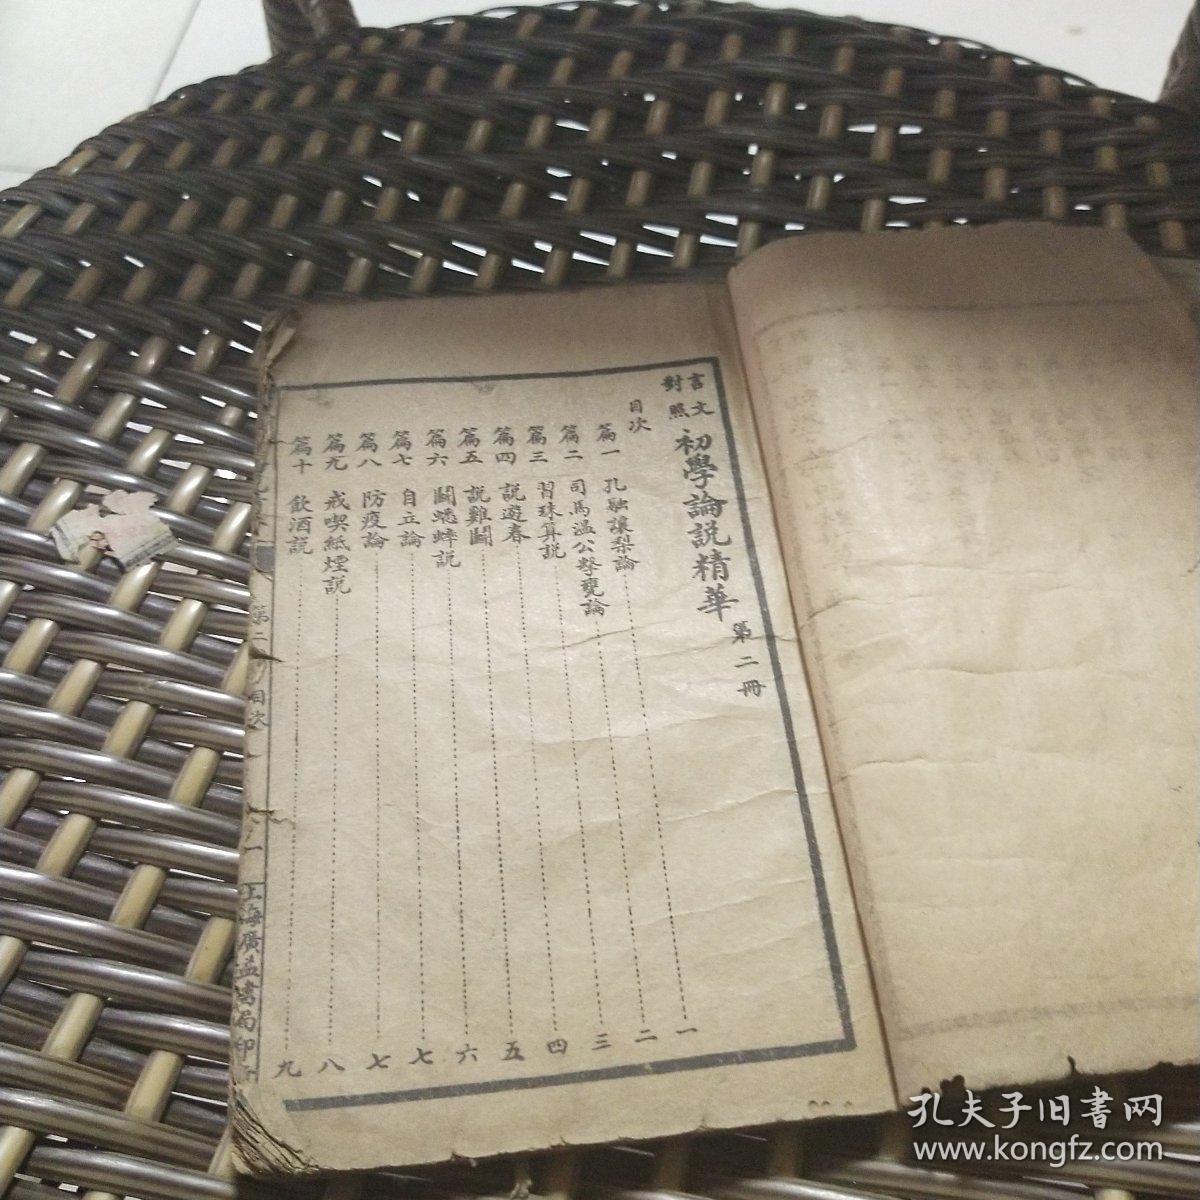 言文對照
初學論說精華 第二冊
目次
篇一 孔融讓梨論 一
篇二 司馬溫公擊甕論 二
篇三 習珠算説 三
篇四 説遊春 四
篇五 説雞鬭 五
篇六 鬭蟋蟀説 六
篇七 自立論 七
篇八 防疫論 七
篇九 戒喫紙煙説 八
篇十 飲酒説 九
第二 目次 一
上海廣益書局印
孔夫子旧書网
www.kongfz.com